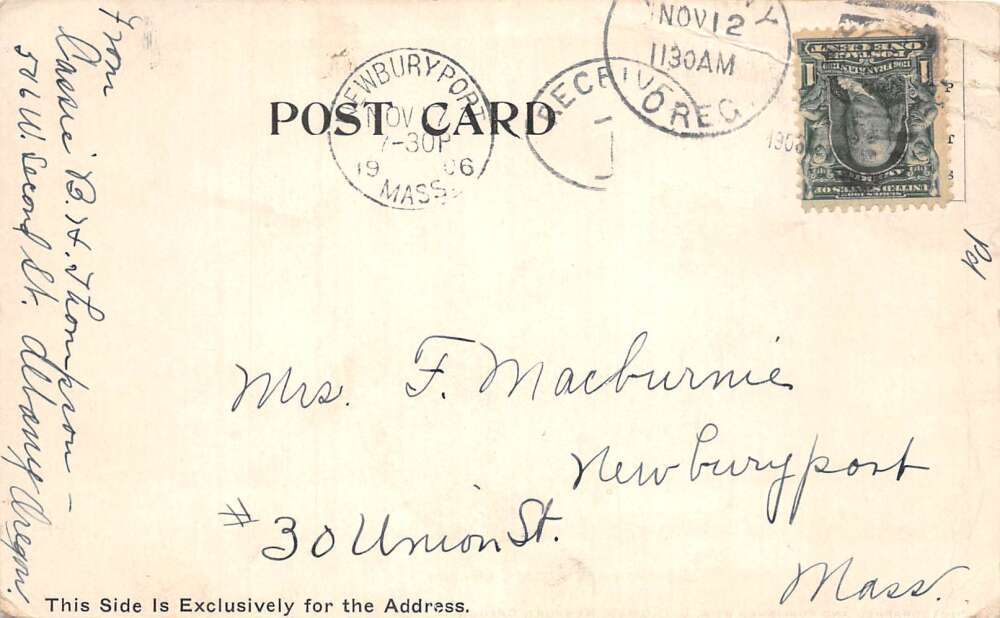 From
Cassie B. H. Thompson –
506 W. Second St. Albany Oregon.
POST CARD
NEWBURYPORT
NOV 17
7-30P
19 06
MASS.
RECEIVED
NOV 12
1130AM
OREG.
1906
ONE CENT
1 1
UNITED STATES OF
AMERICA
Pd
Mrs. F. Macburnie
Newburyport
#30 Union St.
Mass.
This Side Is Exclusively for the Address.